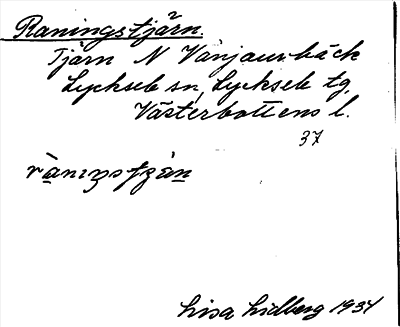 Raningstjärn.
Tjärn N Vänjaurbäck
Lycksele sn, Lycksele tg.
Västerbottens l.
37
Lisa Lidberg 1934